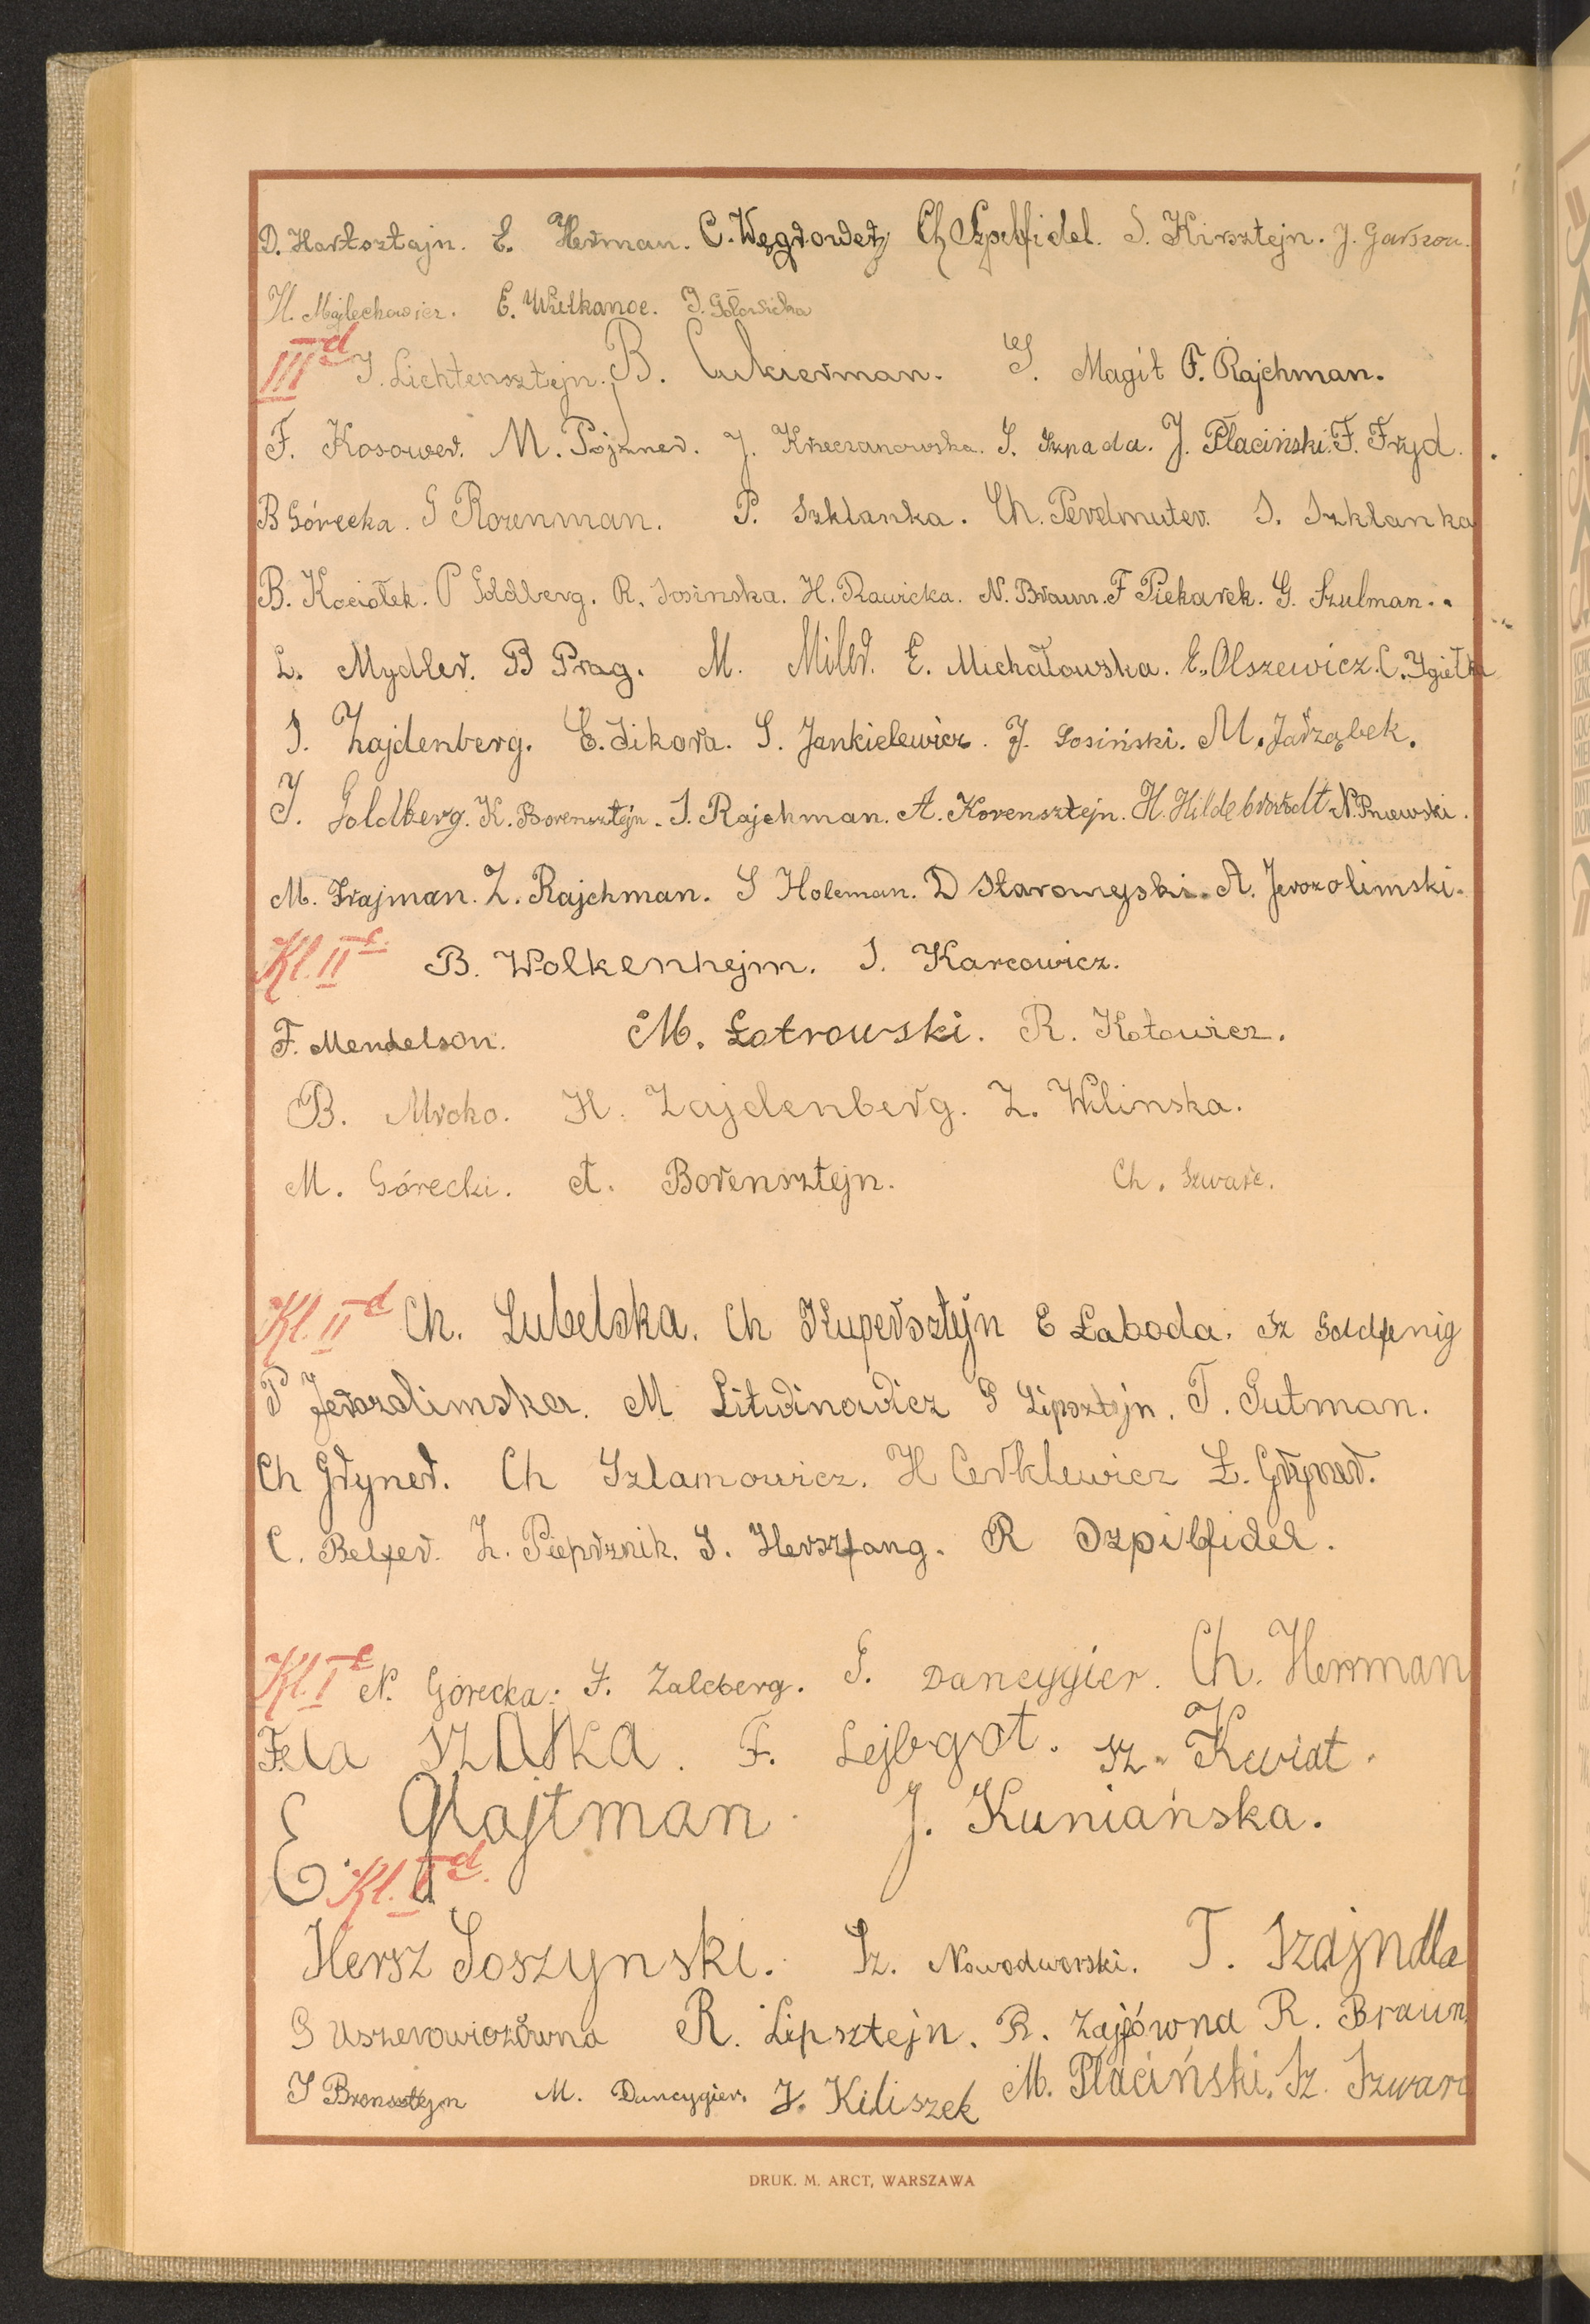 D. Hartsztajn. E. Herman. C. Węgrower Ch Szpilfidel. S. Kirsztejn. J. Garszon.
H. Majlechowicz. E. Wielkanoc. J. Gołowicka
III d J. Lichtensztejn. B. Cukierman. S. Magit F. Rajchman.
F. Kosower. M. Pojzner. J. Krzeczanowska. S. Szpada. J. Płaciński. F. Fryd.
B Górecka. G Rozenman. P. Szklanka. Ch. Perelmuter. S. Szklanka
B. Kociołek. P Goldberg. R. Sosinska. H. Rawicka. N. Braun. F Piekarek. G. Szulman.
L. Mydler. B Prag. M. Miler. E. Michałowska. E. Olszewicz. C. Igiełka
S. Zajdenberg. E. Sikora. S. Jankielewicz. J. Sosiński. M. Jarząbek.
J. Goldberg. K. Borensztejn. S. Rajchman. A. Korensztejn. H. Hildebrandt N. Pniewski.
M. Frajman. Z. Rajchman. S Holcman. D Staromyski. A. Jerozolimski.
Kl. II c. B. Wolkenhejm. S. Karcowicz.
F. Mendelson. M. Łotrowski. R. Kotowicz.
B. Mroko. H. Zajdenberg. Z. Wilinska.
M. Górecki. A. Borensztejn. Ch. Szwarc.
Kl. II d Ch. Lubelska. Ch Kupersztejn E Łaboda. Sz Goldfenig
P Jerozolimska. M Litwinowicz G Lipsztejn. T. Gutman.
Ch Gryner. Ch Szlamowicz. H Cerklewicz Ł. Gryner.
C. Belfer. Z. Pieprznik. S. Herszfang. R Szpilfidel.
Kl. I c N. Górecka. F. Zalcberg. S. Dancygier. Ch. Herman
Fela Szajka. F. Lejbgot. Sz. Kwiat.
E. Glajtman. J. Kuniańska.
Kl. I d.
Hersz Soszynski. Sz. Nowodworski. T. Szajndla
G Uszerowiczówna R. Lipsztejn. R. Zajfówna R. Braun.
S Bronsztejn M. Dancygier. J. Kiliszek M. Płaciński. Sz. Szwarc
DRUK. M. ARCT, WARSZAWA